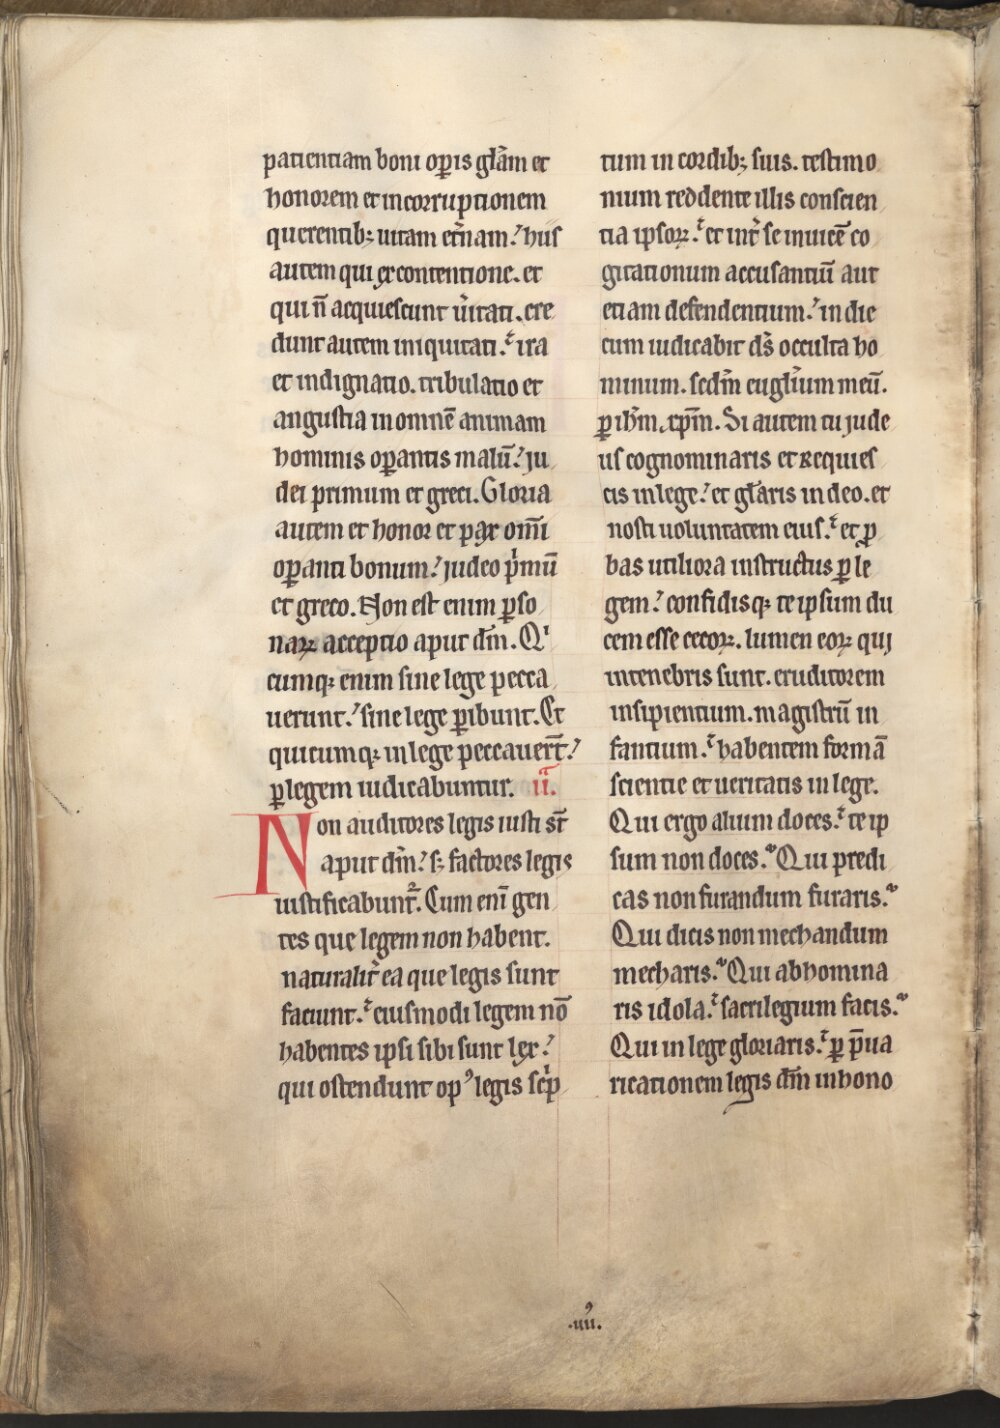 patientiam boni op̱is gl̄am et
honorem et incorruptionem
querentib; uitam et̄nam.ʼ hiis
autem qui ex contentione. et
qui n̄ acquiescunt ūitati. cre
dunt autem iniquitati.ʼ ira
et indignatio. tribulatio et
angustia in omnē animam
hominis op̱antis malū.ʼ ju
dei primum et greci. Gloria
autem et honor et pax om̄i
op̱anti bonum.ʼ judeo p̄mū
et greco. Non est enim p̱so
naꝝ acceptio aput dm̄. Qⁱ
cumqꝫ enim sine lege pecca
uerunt.ʼ sine lege p̱ibunt. Et
quicumqꝫ in lege peccauer̄t.ʼ
p̱ legem iudicabuntur. ii.
Non auditores legis iusti st̄
aput dm̄.ʼ sꝫ factores legis
iustificabunt᷑. Cum eni̅ gen
tes que legem non habent.
naturalit̄ ea que legis sunt
faciunt.ʼ eiusmodi legem nō
habentes ipsi sibi sunt lex.ʼ
qui ostendunt opꝰ legis sc̄p
tum in cordib; suis. testimo
nium reddente illis conscien
tia ipsoꝝ.ʼ et int̄ se inuicē co
gitationum accusantiū aut
etiam defendentium.ʼ in die
cum iudicabit ds̄ occulta ho
minum. scdm̄ eugl̄ium meū.
p̱ ihm̄ xp̄m. Si autem tu jude
us cognominaris et requies
cis in lege.ʼ et gl̄aris in deo. et
nosti uoluntatem eius.ʼ et ꝓ
bas utiliora instructus p̱ le
gem.ʼ confidisqꝫ te ipsum du
cem esse cecoꝝ. lumen eoꝝ qui
in tenebris sunt. eruditorem
insipientium. magistrū in
fantium.ʼ habentem formā
scientie et ueritatis in lege.
Qui ergo alium doces.ʼ te ip
sum non doces.ʼ Qui predi
cas non furandum furaris.ʼ
Qui dicis non mechandum
mecharis.ʼ Qui abhomina
ris idola.ʼ sacrilegium facis.ʼ
Qui in lege gloriaris.ʼ p̱ p̄ua
ricationem legis dm̄ inhono
.uiiꝰ.